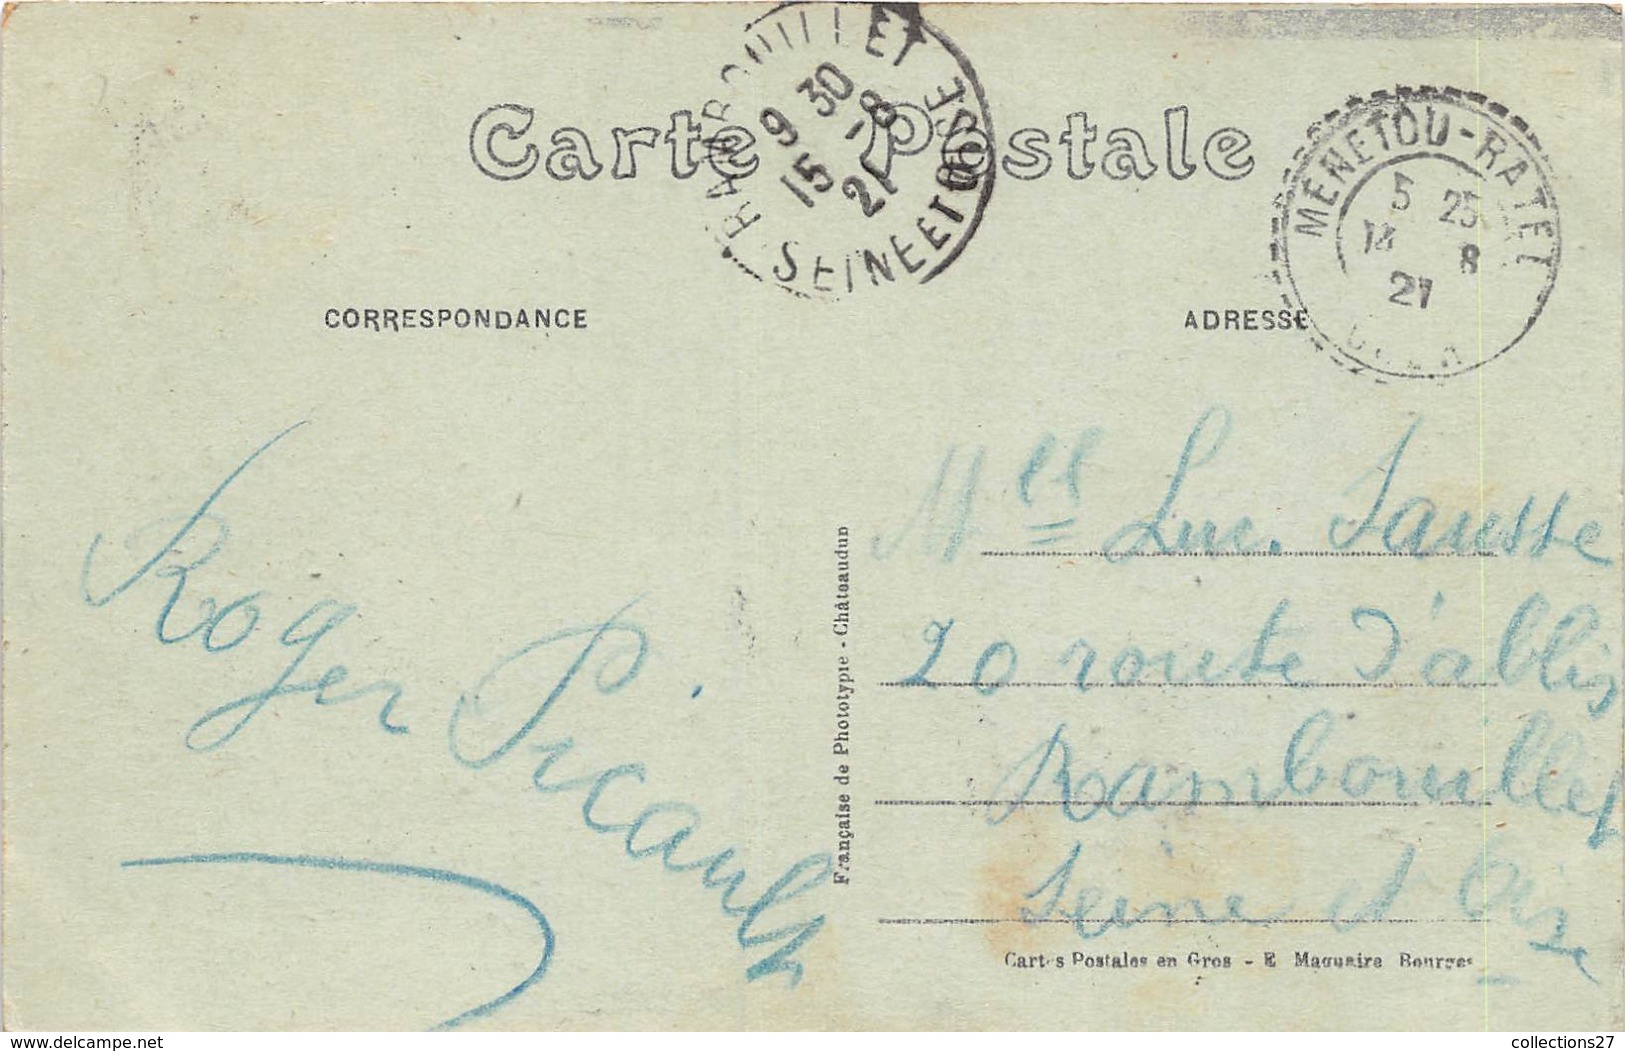 Carte Postale
RAMBOUILLET
9 30
15 -8
21
SEINE ET OISE
MENETOU-RATEL
5 25
14 8
21
CORRESPONDANCE
ADRESSE
Roger Picault
Française de Phototypie - Châteaudun
Mlle Luc. Sausse
20 route d'ablis
Rambouillet
Seine et Oise
Cartes Postales en Gros - E Maquaire Bourges
www.delcampe.net
collections27